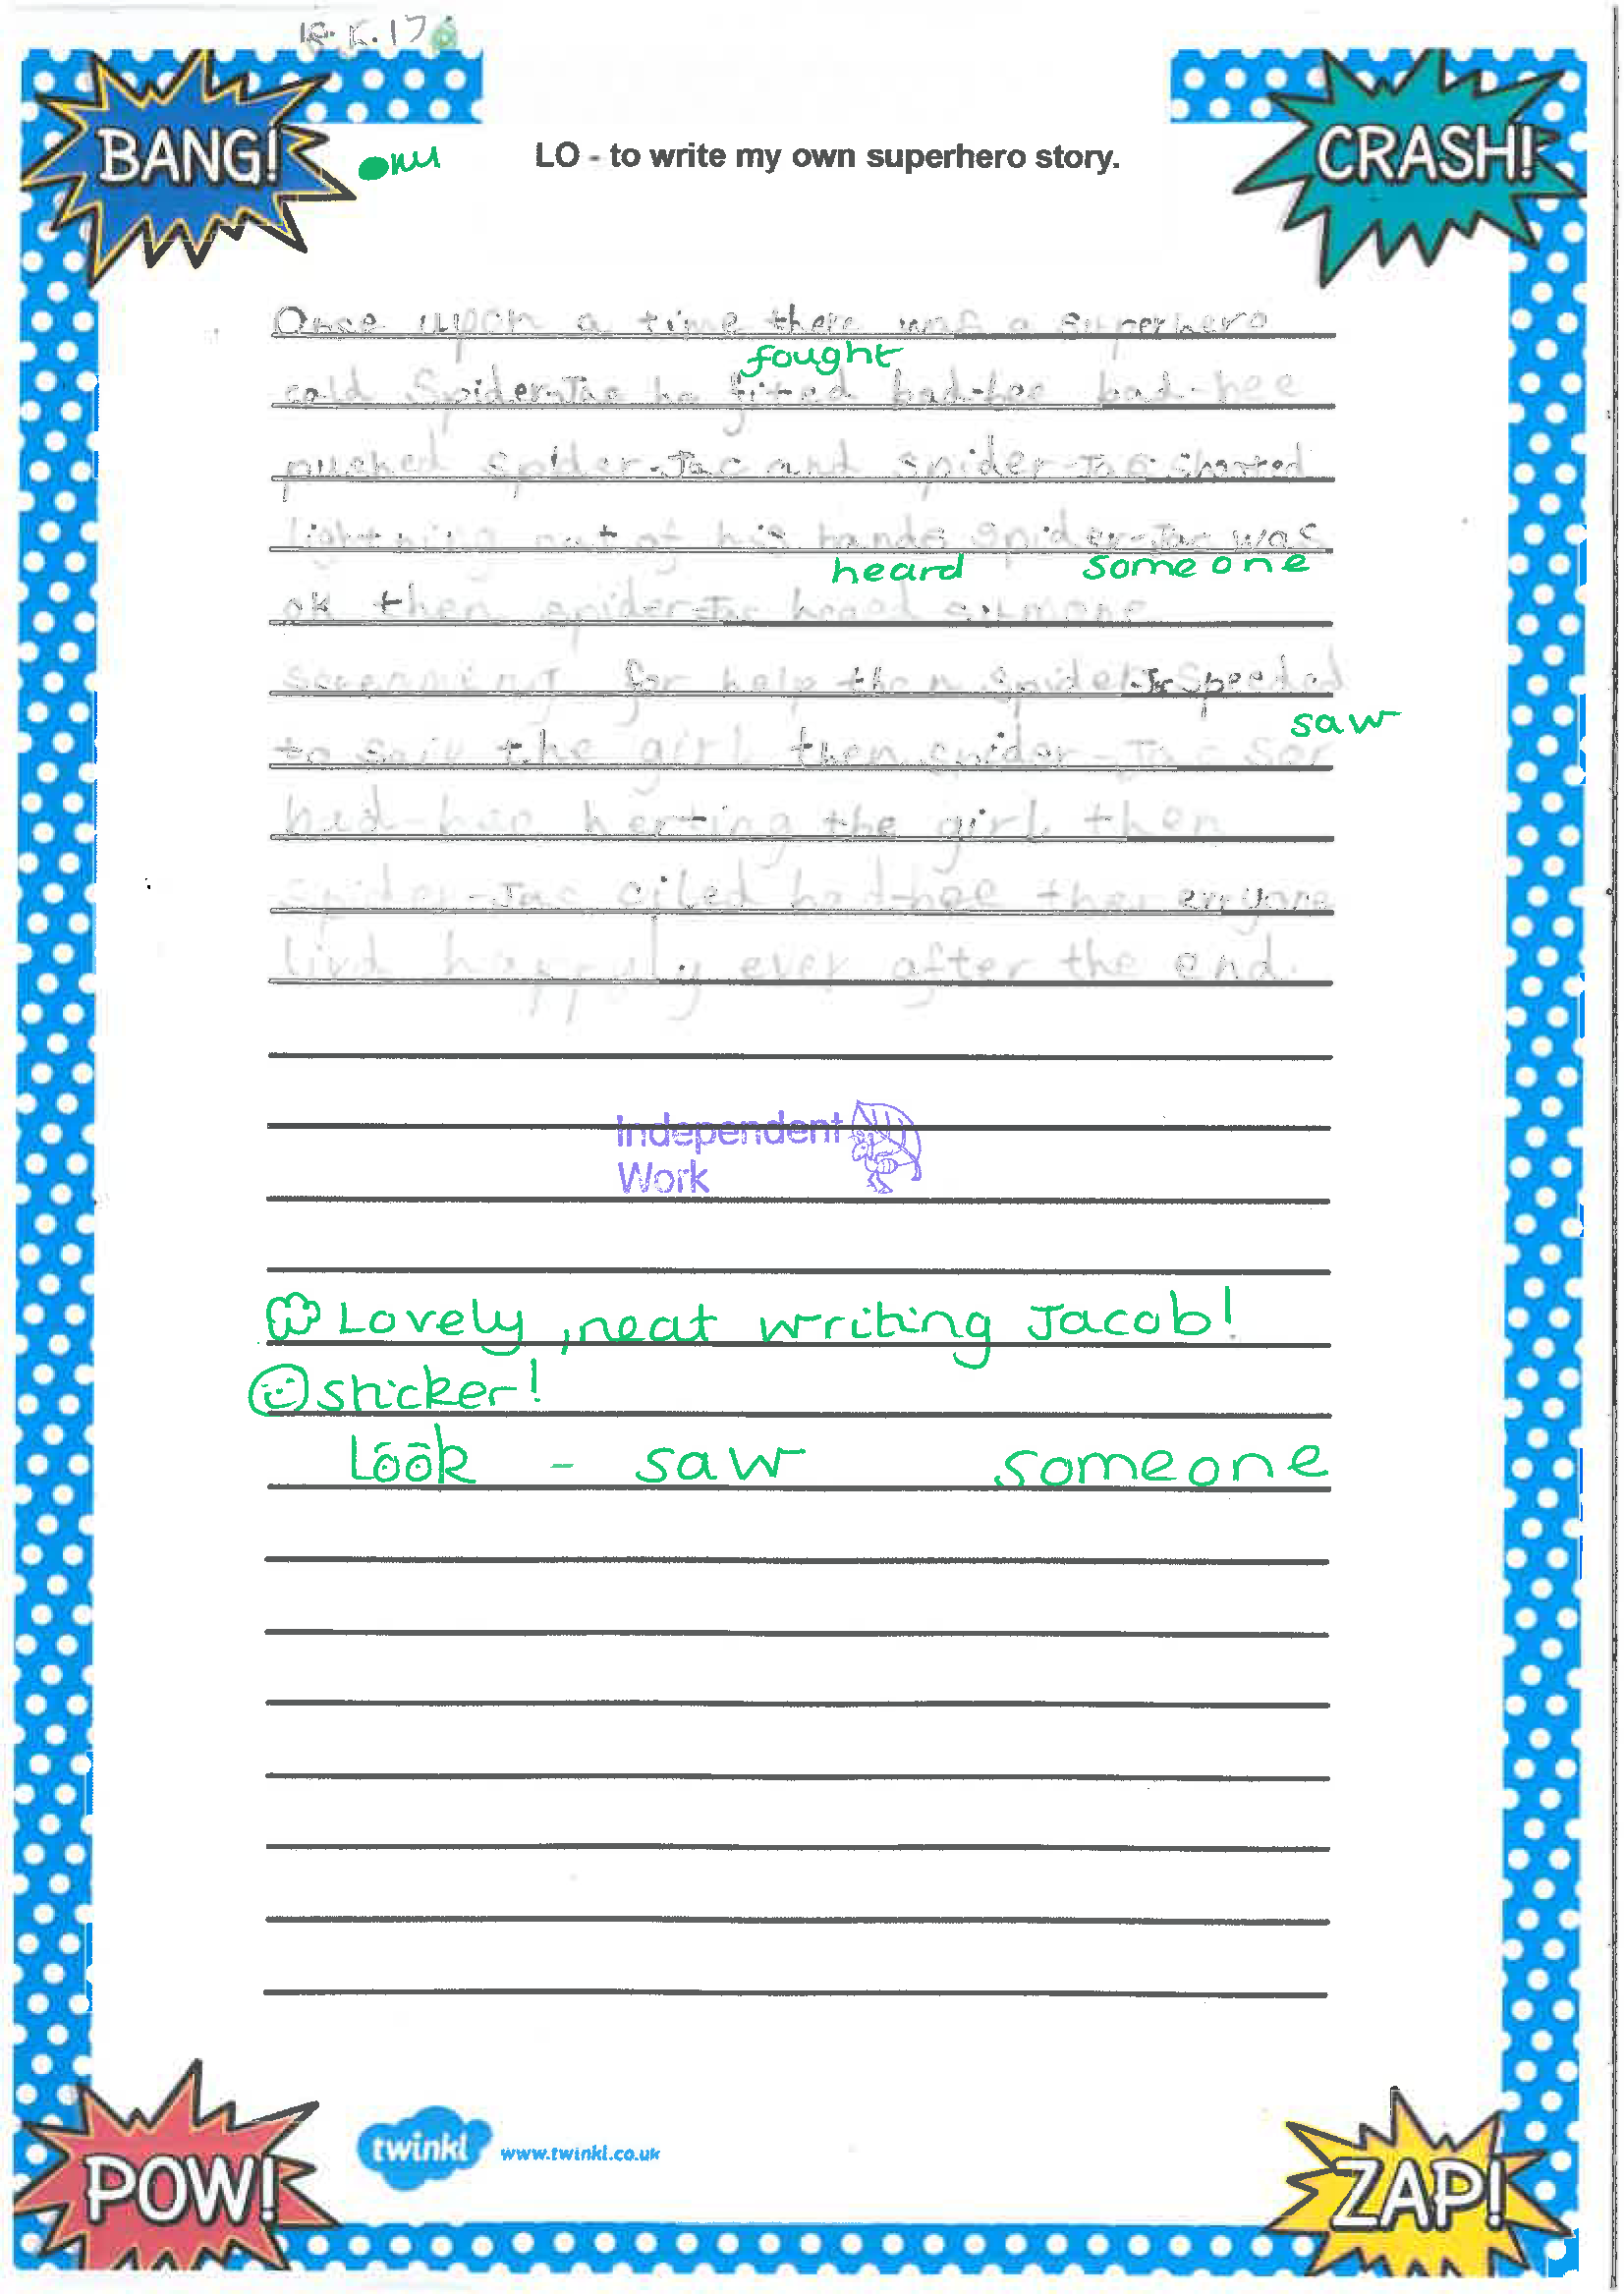 18.5.17
BANG!
CRASH!
LO - to write my own superhero story.
Once upon a time there was a superhero
fought
cold Spider-Jac he fited bad-bee bad-bee
pushed spider-Jac and spider-Jac shorted
lightning out of his hands spider-Jac was
heard someone
ok then spider-Jac heard sumone
screaming for help then spider-Jc speeded
saw
to the girl then spider-Jac sor
bad-bee herting the girl then
spider-Jac ciled bad-bee then
livd happyly ever after the end.
Independent
Work
Lovely, neat writing Jacob!
sticker!
Look - saw someone
POW!
twinkl www.twinkl.co.uk
ZAP!